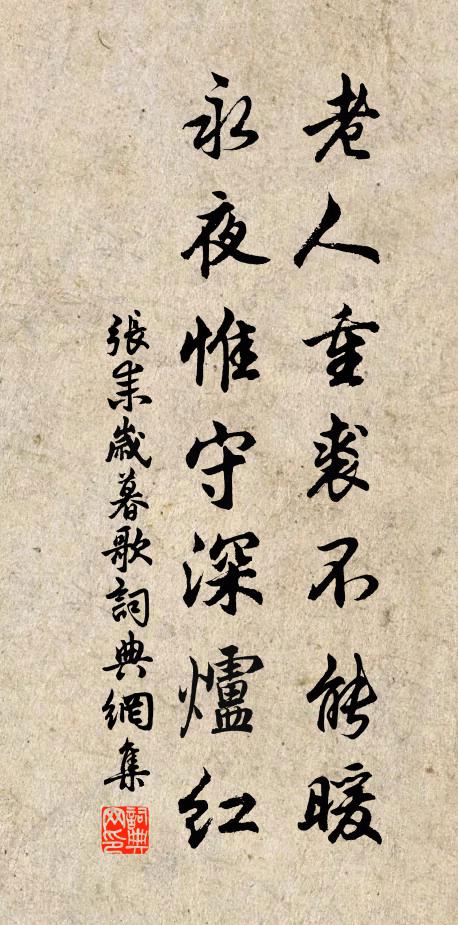 老人重裘不能暖
永夜惟守深爐红
張耒歲暮歌詞典網集
詞典网印